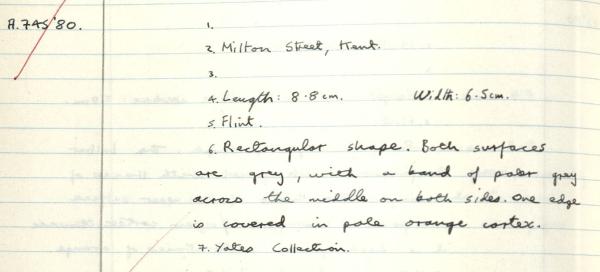 A.745'80.
1.
2. Milton Street, Kent.
3.
4. Length: 8.8cm. Width: 6.5cm.
5. Flint.
6. Rectangular shape. Both surfaces
are grey, with a band of paler grey
across the middle on both sides. One edge
is covered in pale orange cortex.
7. Yates Collection.